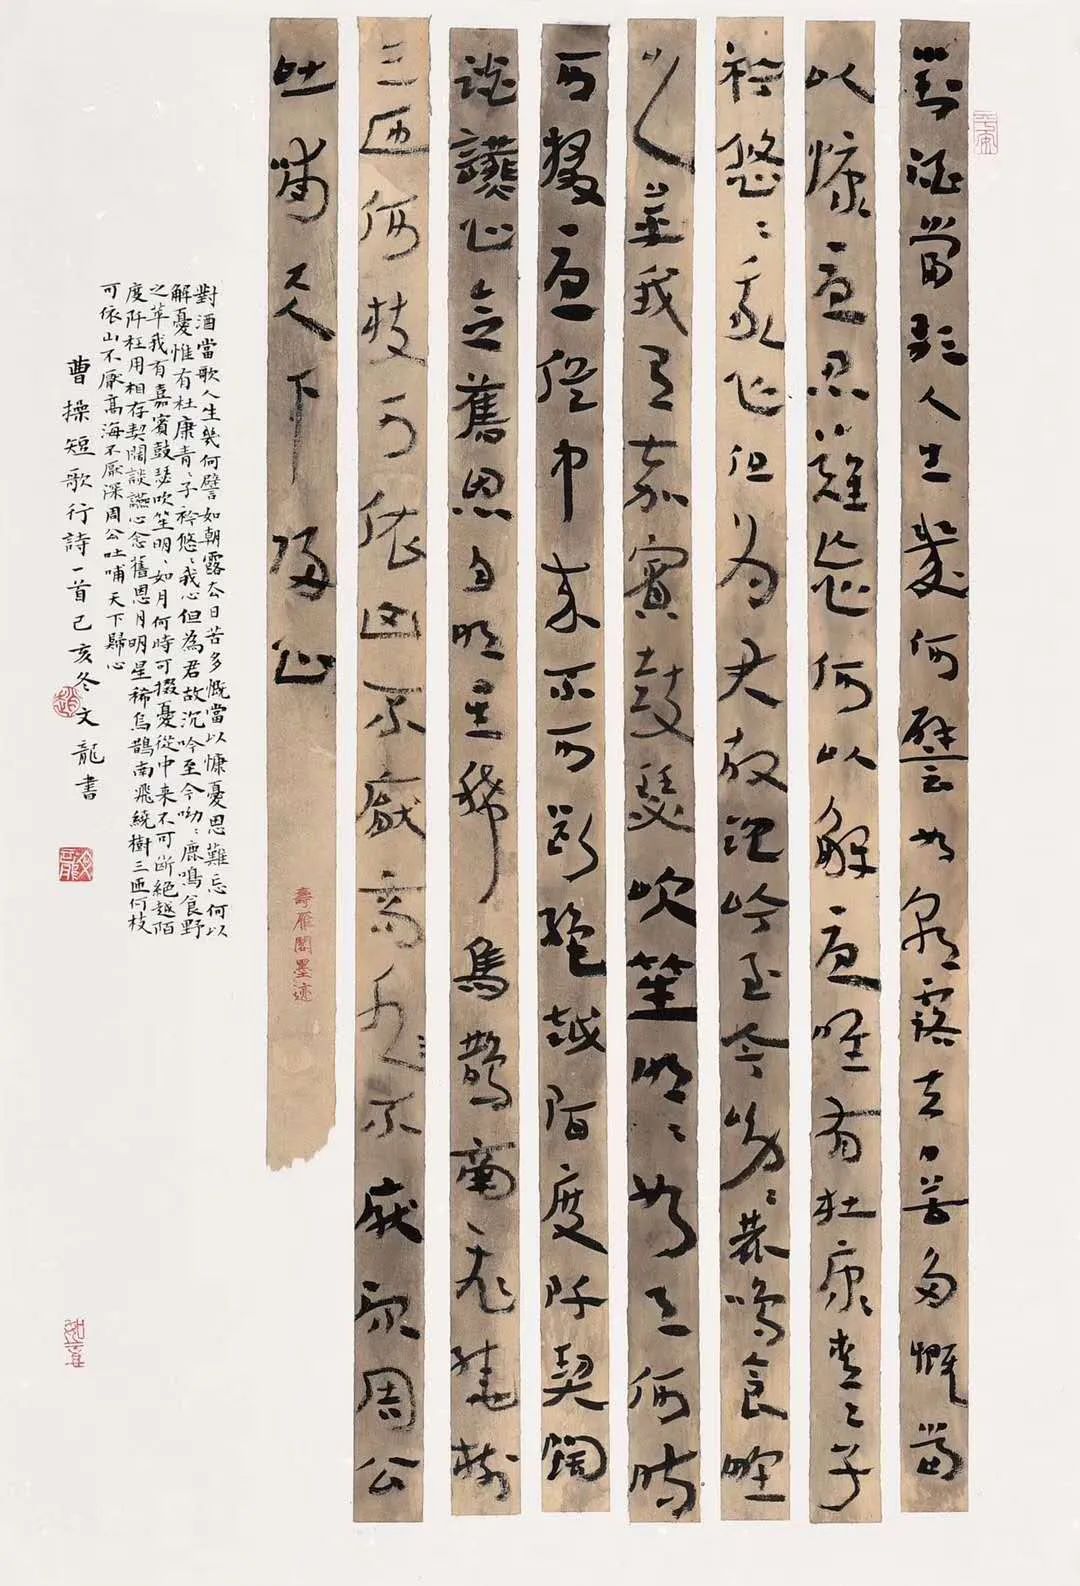 對酒當歌人生幾何譬如朝露去日苦多慨當
以慷憂思難忘何以解憂唯有杜康青〻子
衿悠〻我心但為君故沉吟至今呦〻鹿鳴食野
之苹我有嘉賓鼓瑟吹笙明〻如月何時
可掇憂從中来不可斷絕越陌度阡契闊
談讌心念舊恩月明星稀烏鵲南飛繞樹
三匝何枝可依山不厭高海不厭深周公
吐哺天下歸心
壽雁閣墨迹
對酒當歌人生幾何譬如朝露去日苦多慨當以慷憂思難忘何以
解憂惟有杜康青〻子衿悠〻我心但為君故沉吟至今呦〻鹿鳴食野
之苹我有嘉賓鼓瑟吹笙明〻如月何時可掇憂從中来不可斷絕越陌
度阡枉用相存契闊談讌心念舊恩月明星稀烏鵲南飛繞樹三匝何枝
可依山不厭高海不厭深周公吐哺天下歸心
曹操短歌行詩一首己亥冬文龍書
文龍
如意